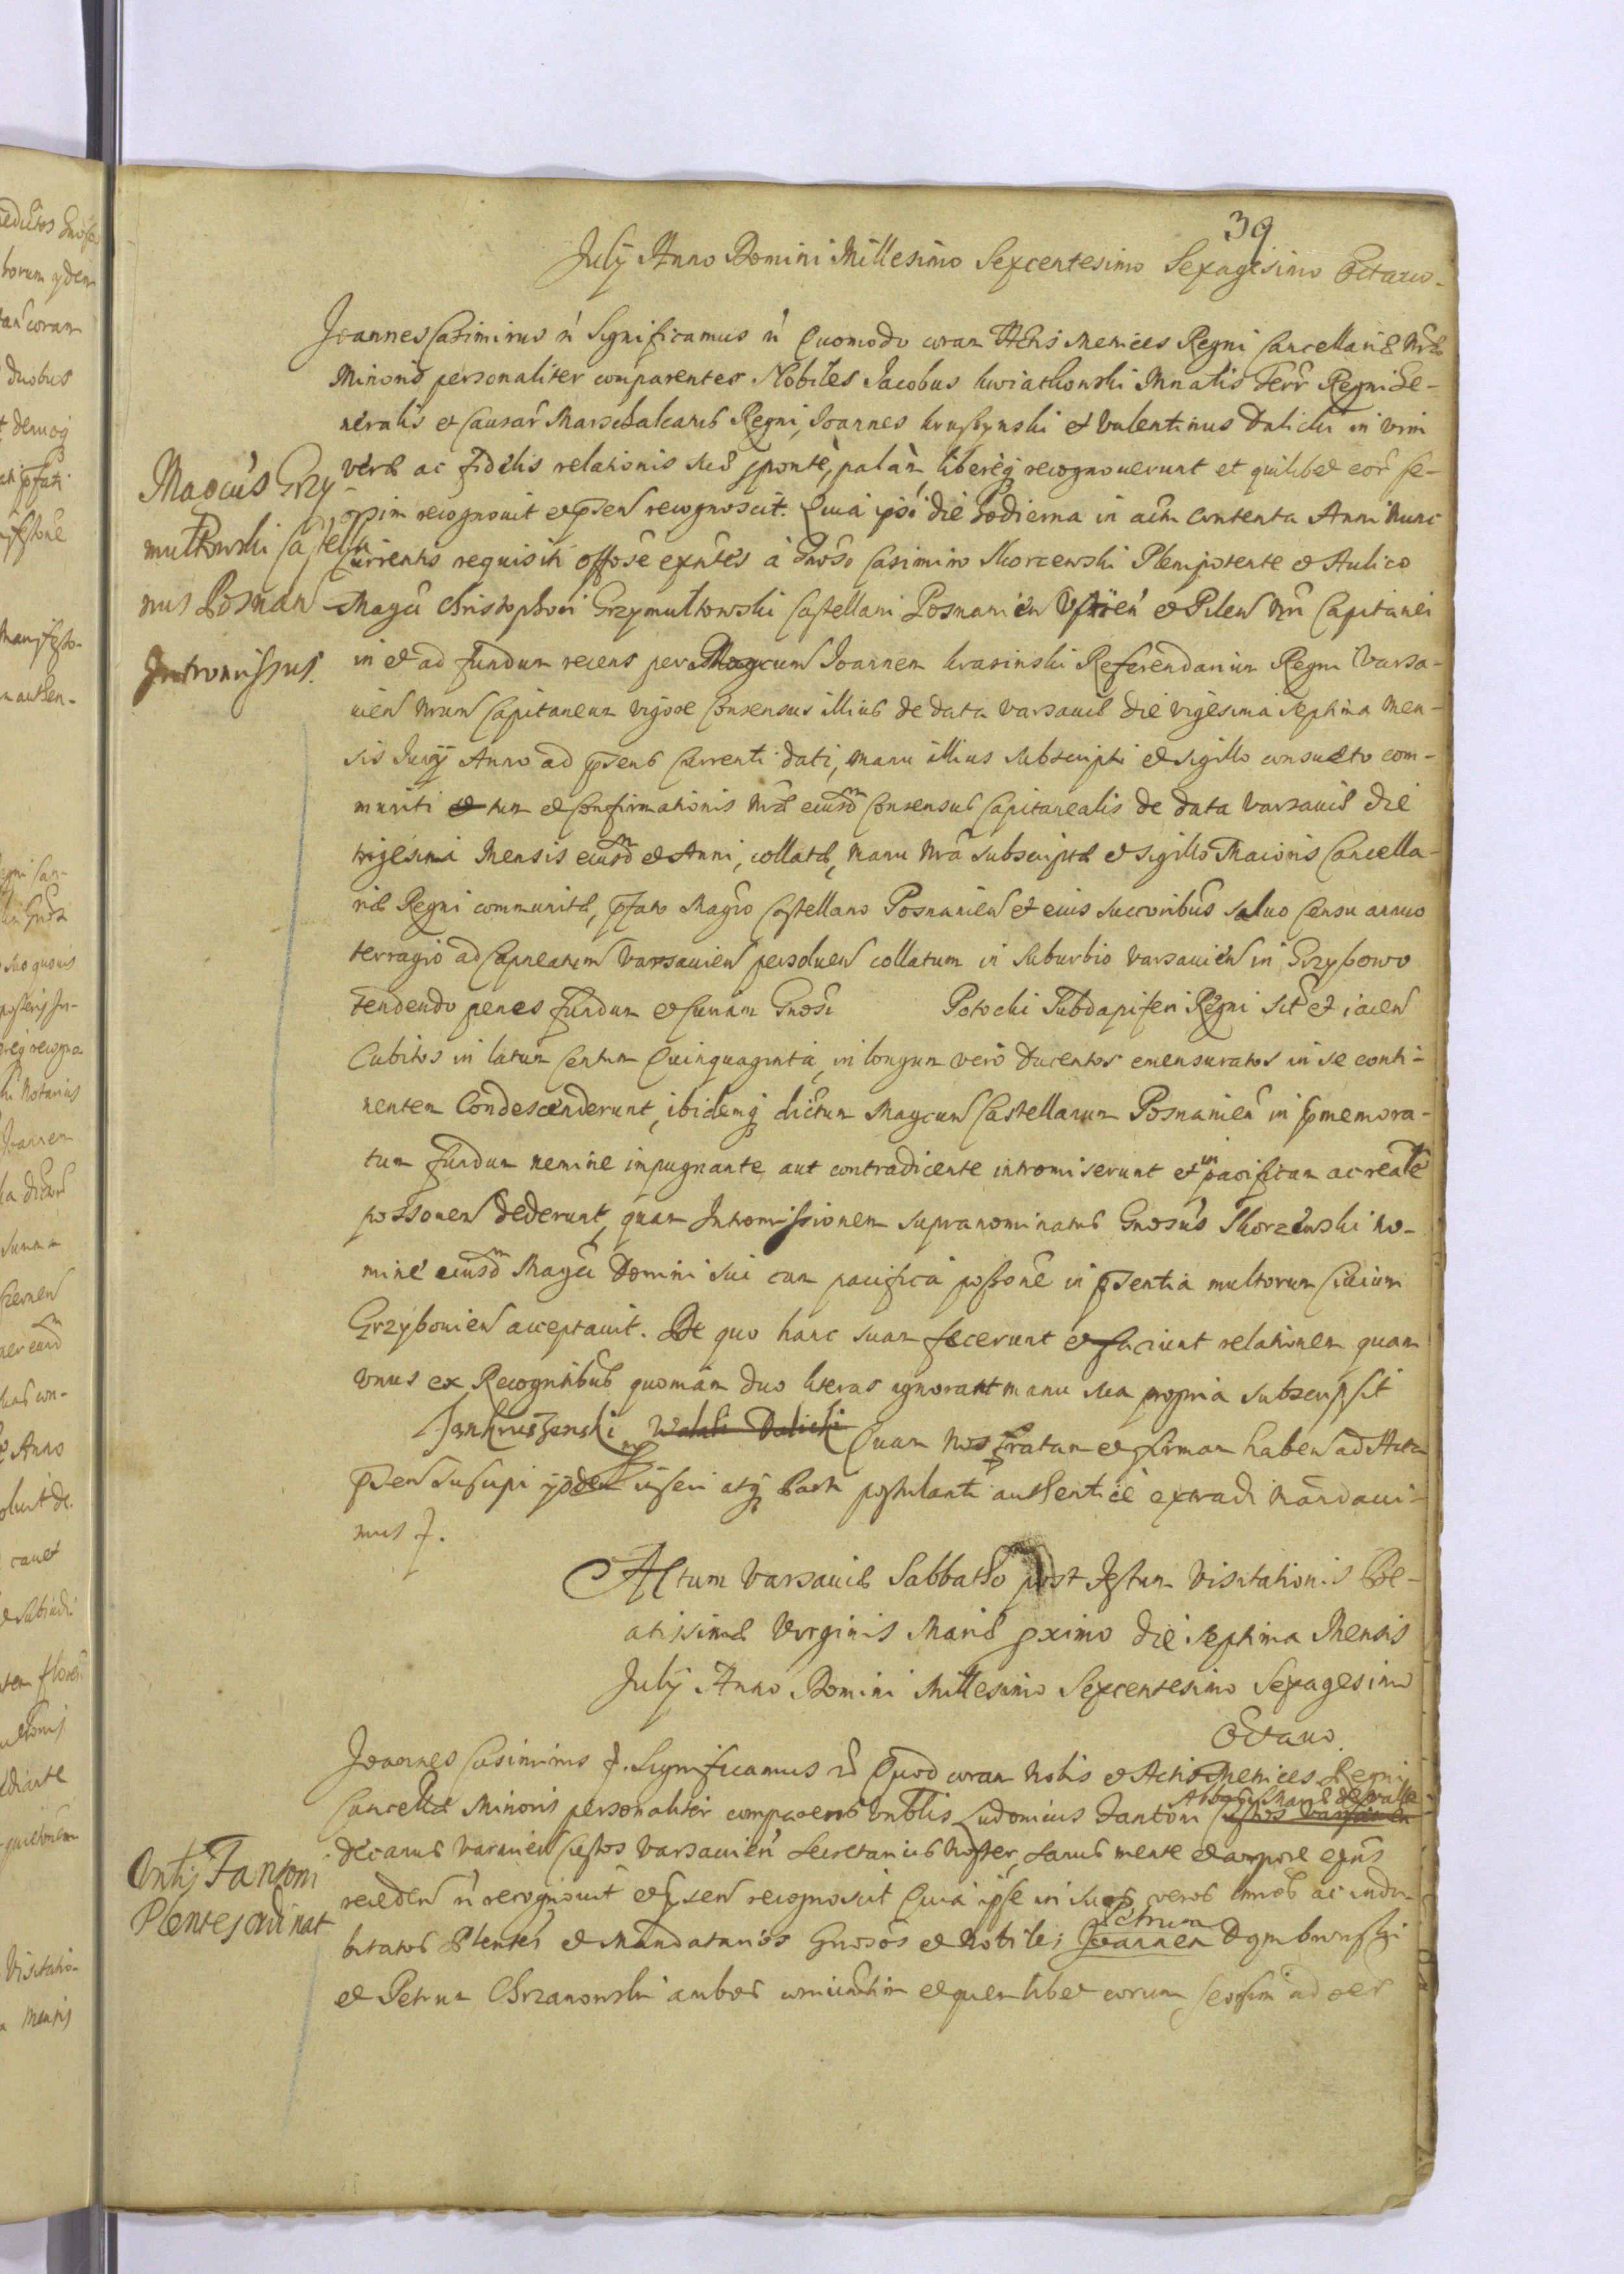 39
July Anno Domini Millesimo Sexcentesimo Sexagesimo Octauo.
Joannes Casimirus Significamus Quomodo coram Actis Metrices Regni Cancellariæ Nræ
Minoris personaliter comparentes Nobiles Jacobus Kwiatkowski Mnalis Terr Regni Ge-
neralis et Causar Marschalcarus Regni, Joannes Kruszynski et Valentinus Dalicki in vim
veræ ac fidelis relationis suæ sponte, palam, libereq recognouerunt et quilibet eor se-
orsim recognouit et psen recognoscit. Quia ipsi die hodierna in actu contenta Anni nunc
Currentis requisiti offose exntes à Gnoso Casimiro Skorzewski Plenipotente et Aulico
Magci Christophori Grzymultowski Castellani Posnanien Vstien et Pilen Nri Capitanei
in et ad fundum recens per Magcum Joannem Krasinski Referendarium Regni Varsa-
uien Nrum Capitaneum vigore Consensus illius de data Varsauiæ die vigesima septima Men-
sis Juny Anno ad psens Currenti dati, manu illius subscripti et sigillo consueto com-
muniti tum et Confirmationis Nræ eiusdm Consensus Capitanealis de data Varsauiæ die
trigesima Mensis eiusdm et Anni, collatæ, manu Nra subscriptæ et sigillo Maioris Cancella-
riæ Regni communitæ, pfato Magco Castellano Posnanien et eius succoribus saluo Censu annuo
terragio ad Capneatum Varsauien persoluen collatum in suburbio Varsauien in Grzybowo
tendendo penes fundum et Curiam Gnosi Potocki Subdapiferi Regni sit et iacen
Cubitos in latum Centum Quinquaginta, in longum vero Ducentos emensuratos in se conti-
nentem Condescenderunt, ibidemq dictum Magcum Castellanum Posnanien in spmemora-
tum fundum nemine impugnante aut contradicente intromiserunt et in pacificam ac reale
possonem dederunt, quam Intromissionem supranominatus Gnosus Skorzewski no-
mine eiusdm Magci Domini sui cum pacifica possone in psentia multorum Ciuium
Grzybouien acceptauit. De quo hanc suam fecerunt et faciunt relationem quam
vnus ex Recogntibus quoniam duo literas ignorant manu sua propria subscripsit
Jan Kruszenski Walenti Dalicki Quam Nos gratam et firmam haben ad Acta
psen suscipi inseri atq Parti postulanti authentice extradi mandaui-
mus
Actum Varsauiæ Sabbatho post Festum Visitationis Be-
atissimæ Virginis Mariæ pximo die septima Mensis
July Anno Domini Millesimo Sexcentesimo Sexagesimo
Octauo.
Joannes Casimirus Significamus Quod coram Nobis et Actis Metrices Regni
Cancellæ Minoris personaliter comparens Vnblis Ludouicus Fantoni Abbas Mariæ de Custos Varsauien
decanus Varmien Custos Varsauien Secretarius Noster, sanus mente et corpore exns
receden recognouit et psen recognoscit Quia ipse in suos veros Lnos ac indu-
bitatos Plentes et Mandatarios Gnosos et Nobiles Petrum Joannem
et Petrum Chrzanowski ambos coniunctim et quemlibet eorum seorsim
Magcus Grzy-
multowski Castella
nus Posnan
Intromissus.
Fantoni
Plentes ordinat